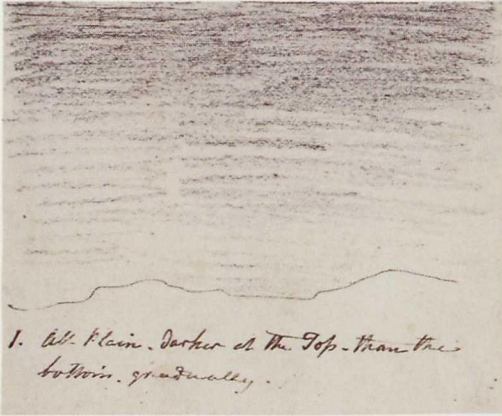 1. All Plain. Darker at the Top. than the
bottom. gradually.